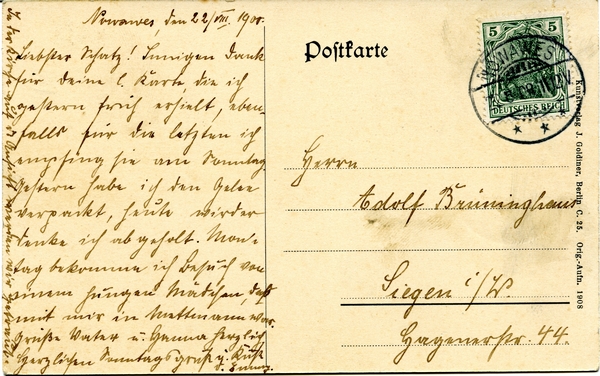 Nowawes, den 22/VIII. 190
Liebster Schatz! Innigen Dank
für deine l. Karte, die ich
gestern früh erhielt, eben-
falls für die letzten ich
empfing sie am Sonntag
Gestern habe ich den Gelee
verpackt, heute wird er
denke ich abgeholt. Mon-
tag bekomme ich Besuch von
einem jungen Mädchen, daß
mit mir in Mettmann war.
Grüße Vater u. Hanna herzlich
Herzlichen Sonntagsgruß u. Kuß
Postkarte
5 5
DEUTSCHES REICH
NOWAWES
Herrn
Adolf Brüninghaus
Siegen i/W.
Hagenerstr. 44.
Kunstverlag J. Goldiner, Berlin C. 25. Orig.-Aufn. 1908